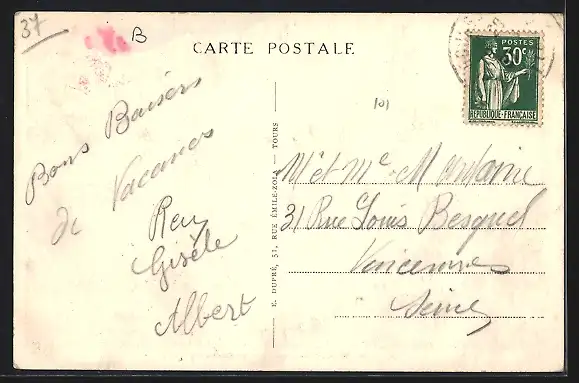 37
B
CARTE POSTALE
POSTES
30c
RÉPUBLIQUE-FRANÇAISE
101
Bons Baisers
de Vacances
Gisèle
Albert
E. DUPRÉ, 51, RUE ÉMILE-ZOLA — TOURS
M et Me
31 Rue Louis Besquel
Vincennes
Seine